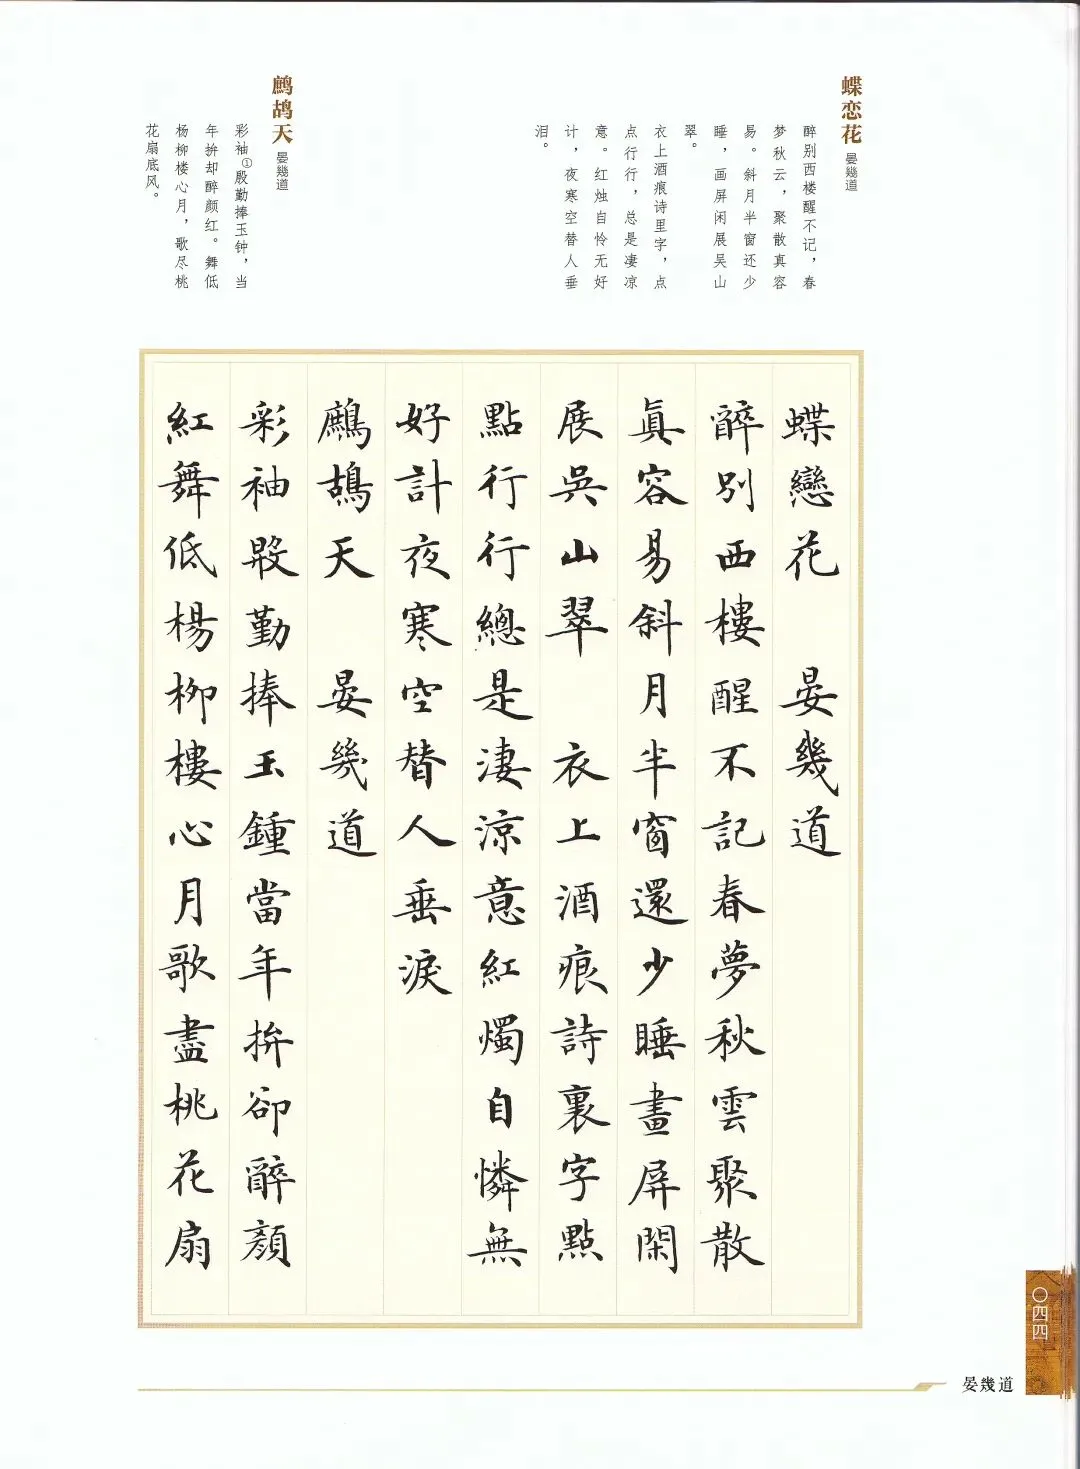 蝶恋花
晏幾道
醉别西楼醒不记，春
梦秋云，聚散真容
易。斜月半窗还少
睡，画屏闲展吴山
翠。
衣上酒痕诗里字，点
点行行，总是凄凉
意。红烛自怜无好
计，夜寒空替人垂
泪。
鹧鸪天
晏幾道
彩袖①殷勤捧玉钟，当
年拚却醉颜红。舞低
杨柳楼心月，歌尽桃
花扇底风。
蝶戀花 晏幾道
醉别西樓醒不記春夢秋雲聚散
真容易斜月半窗還少睡畫屏閑
展吳山翠 衣上酒痕詩裏字點
點行行總是淒涼意紅燭自憐無
好計夜寒空替人垂淚
鷓鴣天 晏幾道
彩袖殷勤捧玉鍾當年拚卻醉顏
紅舞低楊柳樓心月歌盡桃花扇
〇四四
晏幾道